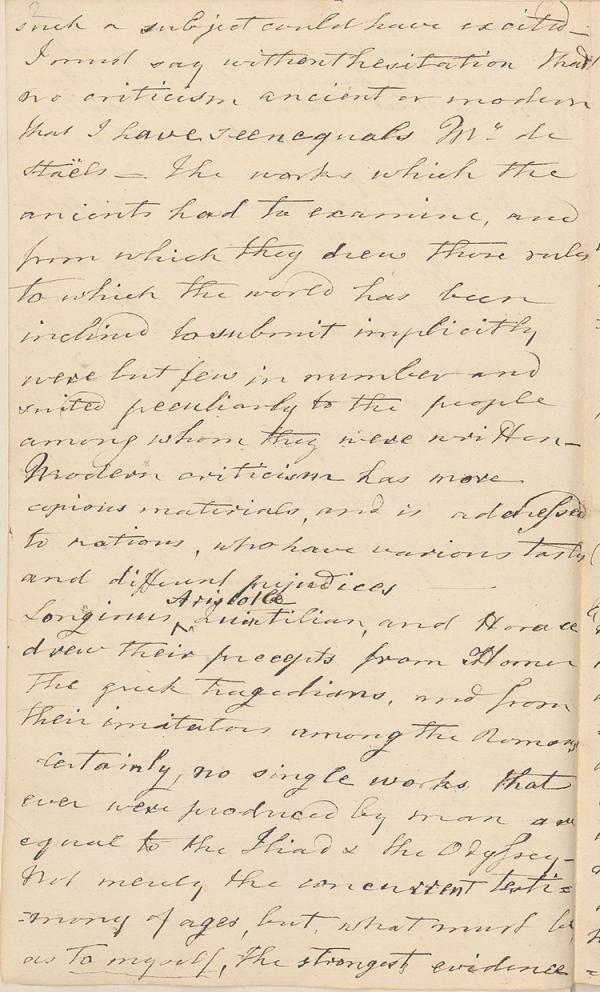 such a subject could have excited_
I must say without hesitation that
no criticism ancient or modern
that I have seen equals Mrs de
Staëls — The works which the
ancients had to examine, and
from which they drew those rules
to which the world has been
inclined to submit implicitly
were but few in number and
suited peculiarly to the people
among whom they were written_
Modern criticism has more
copious materials, and is addressed
to nations, who have various tastes
and different prejudices
Aristotle
Longinus, ^ Quintilian, and Horace
drew their precepts from Homer
The greek tragedians, and from
their imitators among the Romans
certainly, no single works that
ever were produced by man are
equal to the Iliad & the Odyssey_
Not merely the concurrent testi=
=mony of ages, but, what must be
as to myself, the strongest evidence